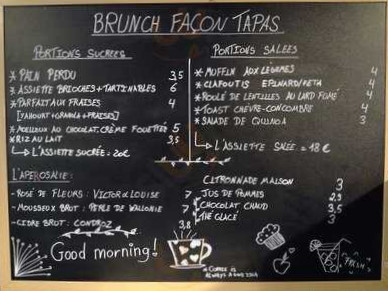 BRUNCH FAÇON TAPAS
PORTIONS SUCREES
* PAIN PERDU 3,5
* ASSIETTE BRIOCHES + TARTINABLES 6
* PARFAIT AUX FRAISES 4
[YAHOURT + GRANOLA + FRAISES]
* MOELLEUX AU CHOCOLAT, CRÈME FOUETTÉE 5
* RIZ AU LAIT 3,5
L'ASSIETTE SUCRÉE = 20€
PORTIONS SALEES
* MUFFIN AUX LÉGUMES 4
* CLAFOUTIS EPINARD/FETA 4
* ROULÉ DE LENTILLES AU LARD FUMÉ 4
* TOAST CHÈVRE-CONCOMBRE 4
* SALADE DE QUINOA 3
L'ASSIETTE SALÉE = 18 €
L'APEROSALIE:
- ROSÉ DE FLEURS: VICTOR & LOUISE 7
- MOUSSEUX BRUT: PERLE DE WALLONIE 7
- CIDRE BRUT: CONDROZ 3,8
CITRONNADE MAISON 3
JUS DE POMMES 2,5
CHOCOLAT CHAUD 3,5
THÉ GLACÉ 3
Good morning!
COFFEE IS
ALWAYS A GOOD IDEA
FRESH